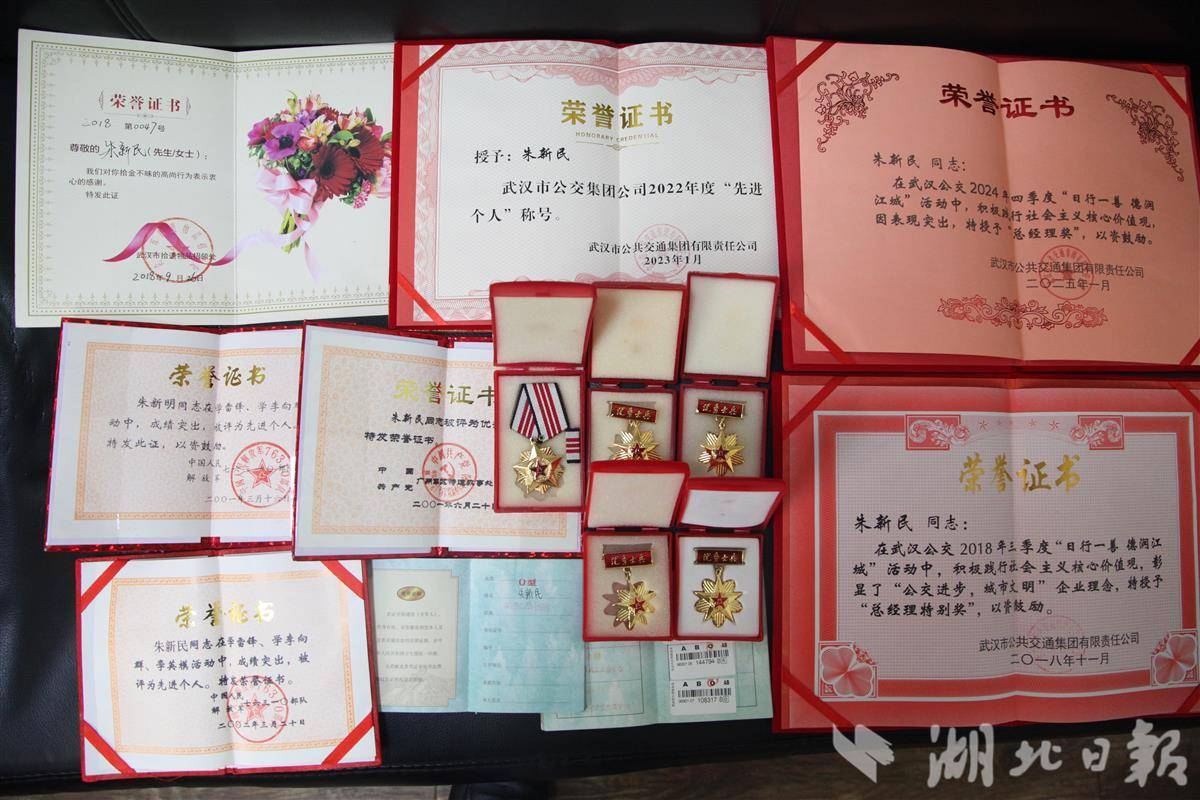 荣誉证书
2018 第0047号
尊敬的 朱新民(先生/女士)：
我们对你拾金不昧的高尚行为表示衷
心的感谢。
特发此证
武汉市拾遗物品招领处
2018年9月26日
荣誉证书
HONORARY CREDENTIAL
授予：朱新民
武汉市公交集团公司2022年度“先进
个人”称号。
武汉市公共交通集团有限责任公司
2023年1月
荣誉证书
朱新民 同志：
在武汉公交2024年四季度“日行一善 德润
江城”活动中，积极践行社会主义核心价值观，
因表现突出，特授予“总经理奖”，以资鼓励。
武汉市公共交通集团有限责任公司
二〇二五年一月
荣誉证书
朱新明同志在学雷锋、学李向
动中，成绩突出，被评为先进个人。
特发此证，以资鼓励。
中国人民
解放军
二〇〇一年三月十
荣誉证书
朱新民同志被评为优
特发荣誉证书。
中国
共产党
二〇〇一年六月二十
优秀士兵
优秀士兵
优秀士兵
优秀士兵
荣誉证书
朱新民 同志：
在武汉公交2018年三季度“日行一善 德润江
城”活动中，积极践行社会主义核心价值观，彰
显了“公交进步，城市文明”企业理念，特授予
“总经理特别奖”，以资鼓励。
武汉市公共交通集团有限责任公司
二〇一八年十一月
荣誉证书
朱新民同志在学雷锋、学李向
群、李英棋活动中，成绩突出，被
评为先进个人。特发荣誉证书。
中国人民
解放军七六三一〇部队
二〇〇二年三月二十日
O型
朱新民
A B O AB
144794
A B O AB
108317
湖北日報